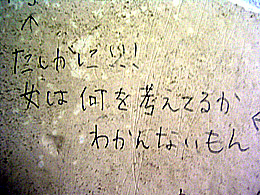 たしかに!!!
女は何を考えてるか
わかんないもん